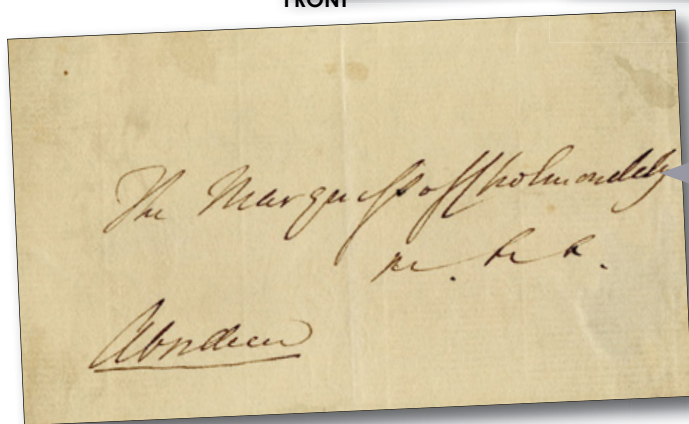 FRONT
The Marquess of Cholmondeley
Aberdeen